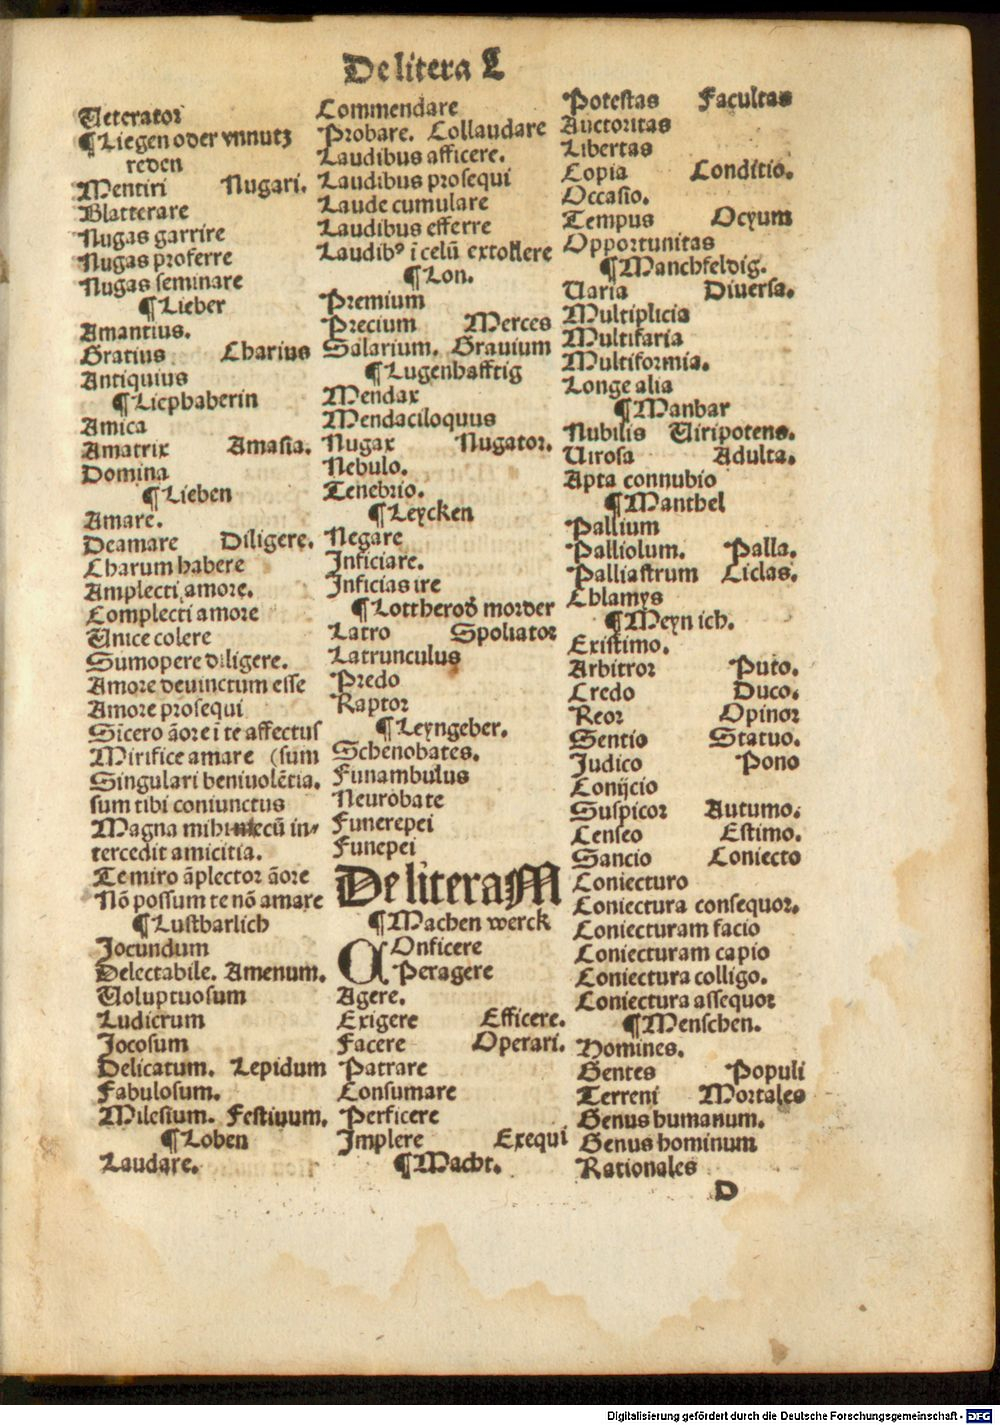 De litera L
Veterator
¶Liegen oder vnnutz
reden
Mentiri Nugari.
Blatterare
Nugas garrire
Nugas proferre
Nugas seminare
¶Lieber
Amantius.
Gratius Charius
Antiquius
¶Liephaberin
Amica
Amatrix Amasia.
Domina
¶Lieben
Amare.
Deamare Diligere.
Charum habere
Amplecti amore.
Complecti amore
Unice colere
Sumopere diligere.
Amore deuinctum esse
Amore prosequi
Sicero āore i te affectus
Mirifice amare (sum
Singulari beniuolētia.
sum tibi coniunctus
Magna mihi tecū in⸗
tercedit amicitia.
Te miro āplector āore
Nō possum te nō amare
¶Lustbarlich
Jocundum
Delectabile. Amenum.
Uoluptuosum
Ludicrum
Jocosum
Delicatum. Lepidum
Fabulosum.
Milesium. Festiuum.
¶Loben
Laudare.
Commendare
Probare. Collaudare
Laudibus afficere.
Laudibus prosequi
Laude cumulare
Laudibus efferre
Laudibꝰ ī celū extollere
¶Lon.
Premium
Precium Merces
Salarium. Brauium
¶Lugenhafftig
Mendax
Mendaciloquus
Nugax Nugator.
Nebulo.
Tenebrio.
¶Leycken
Negare
Inficiare.
Inficias ire
¶Lottherod morder
Latro Spoliator
Latrunculus
Predo
Raptor
¶Leyngeber.
Schenobates.
Funambulus
Neurobate
Funerepei
Funepei
De litera M
¶Machen werck
COnficere
Peragere
Agere.
Exigere Efficere.
Facere Operari.
Patrare
Consumare
Perficere
Implere Exequi
¶Macht.
Potestas Facultas
Auctoritas
Libertas
Copia Conditio.
Occasio.
Tempus Ocyum
Opportunitas
¶Manchfeldig.
Uaria Diuersa.
Multiplicia
Multifaria
Multiformia.
Longe alia
¶Manbar
Nubilis Viripotens.
Uirosa Adulta.
Apta connubio
¶Manthel
Pallium
Palliolum. Palla.
Palliastrum Ciclas.
Chlamys
¶Meyn ich.
Existimo.
Arbitror Puto.
Credo Duco.
Reor Opinor
Sentio Statuo.
Judico Pono
Conijcio
Suspicor Autumo.
Censeo Estimo.
Sancio Coniecto
Coniecturo
Coniectura consequor.
Coniecturam facio
Coniecturam capio
Coniectura colligo.
Coniectura assequor
¶Menschen.
Homines.
Gentes Populi
Terreni Mortales
Genus humanum.
Genus hominum
Rationales
D
Digitalisierung gefördert durch die Deutsche Forschungsgemeinschaft - DFG